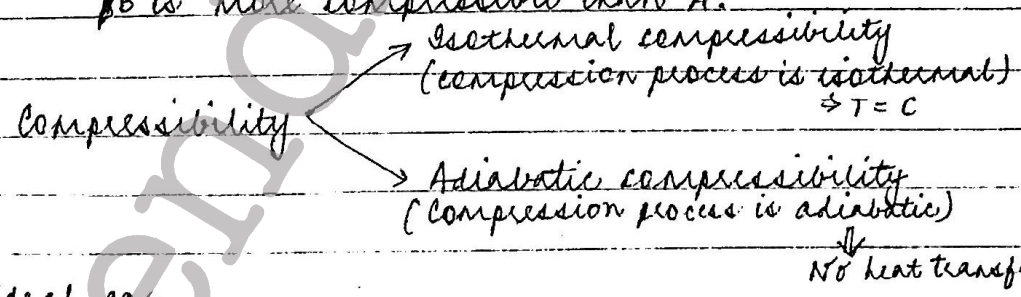 B is more compressible than A.
Isothermal compressibility
(compression process is isothermal)
⇒ T = C
Compressibility
Adiabatic compressibility
(Compression process is adiabatic)
⇓
No heat transf